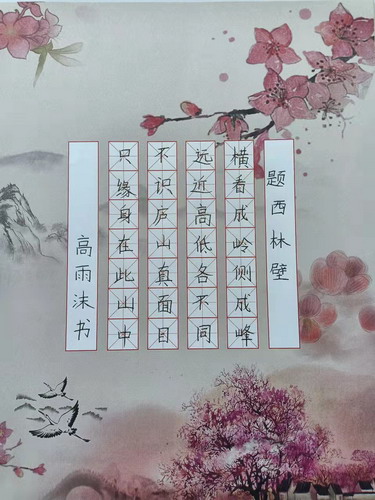 题西林壁
横看成岭侧成峰
远近高低各不同
不识庐山真面目
只缘身在此山中
高雨沫书